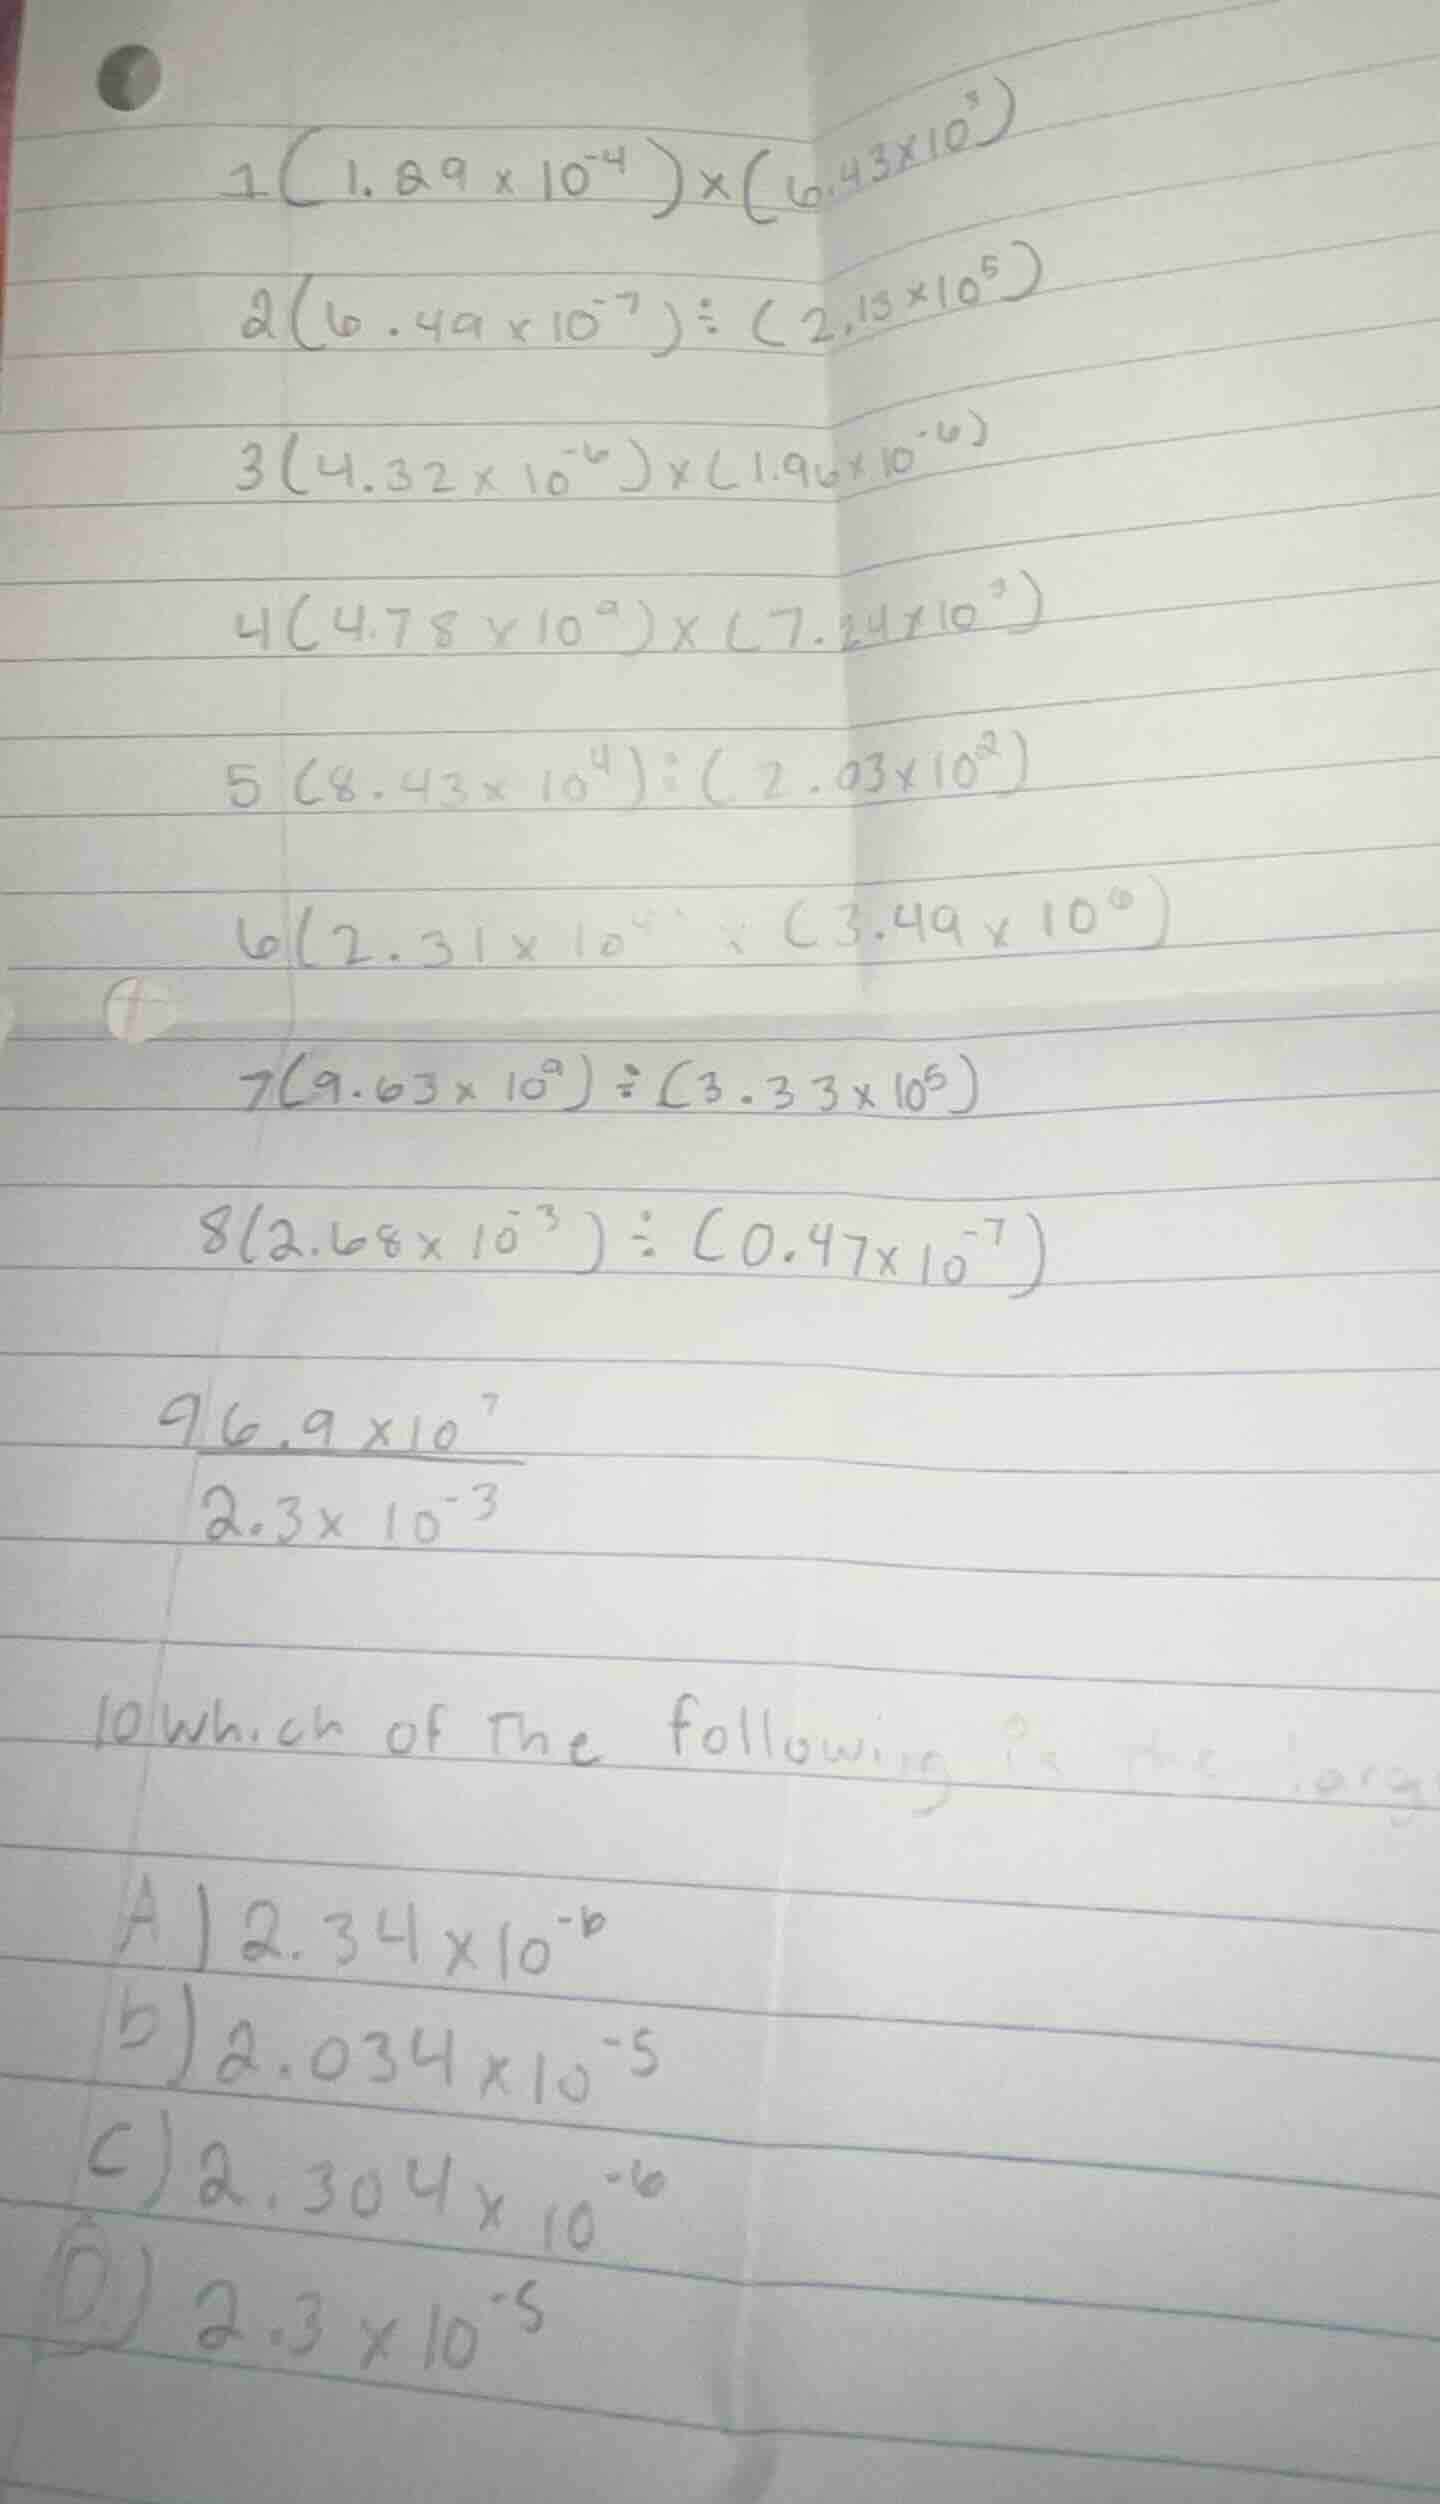 1(1.29 x 10⁻⁴) x (6.43x10
2(6.49 x 10⁻⁷) ÷ (2.13 x 10⁵)
3(4.32 x 10⁻⁶) x (1.96 x 10⁻⁶)
4(4.78 x 10⁹) x (7.24x10
5 (8.43 x 10⁴) ÷ (2.03x10²)
6(2.31 x 10 (3.49 x 10⁶)
7(9.63 x 10⁹) ÷ (3.33 x 10⁵)
8(2.68 x 10⁻³) ÷ (0.47x10⁻⁷)
9 6.9 x10⁷
2.3x 10⁻³
10 Which of The following is the
A) 2.34 x10⁻⁶
b) 2.034 x10⁻⁵
C) 2.304 x 10⁻⁶
D) 2.3 x 10⁻⁵